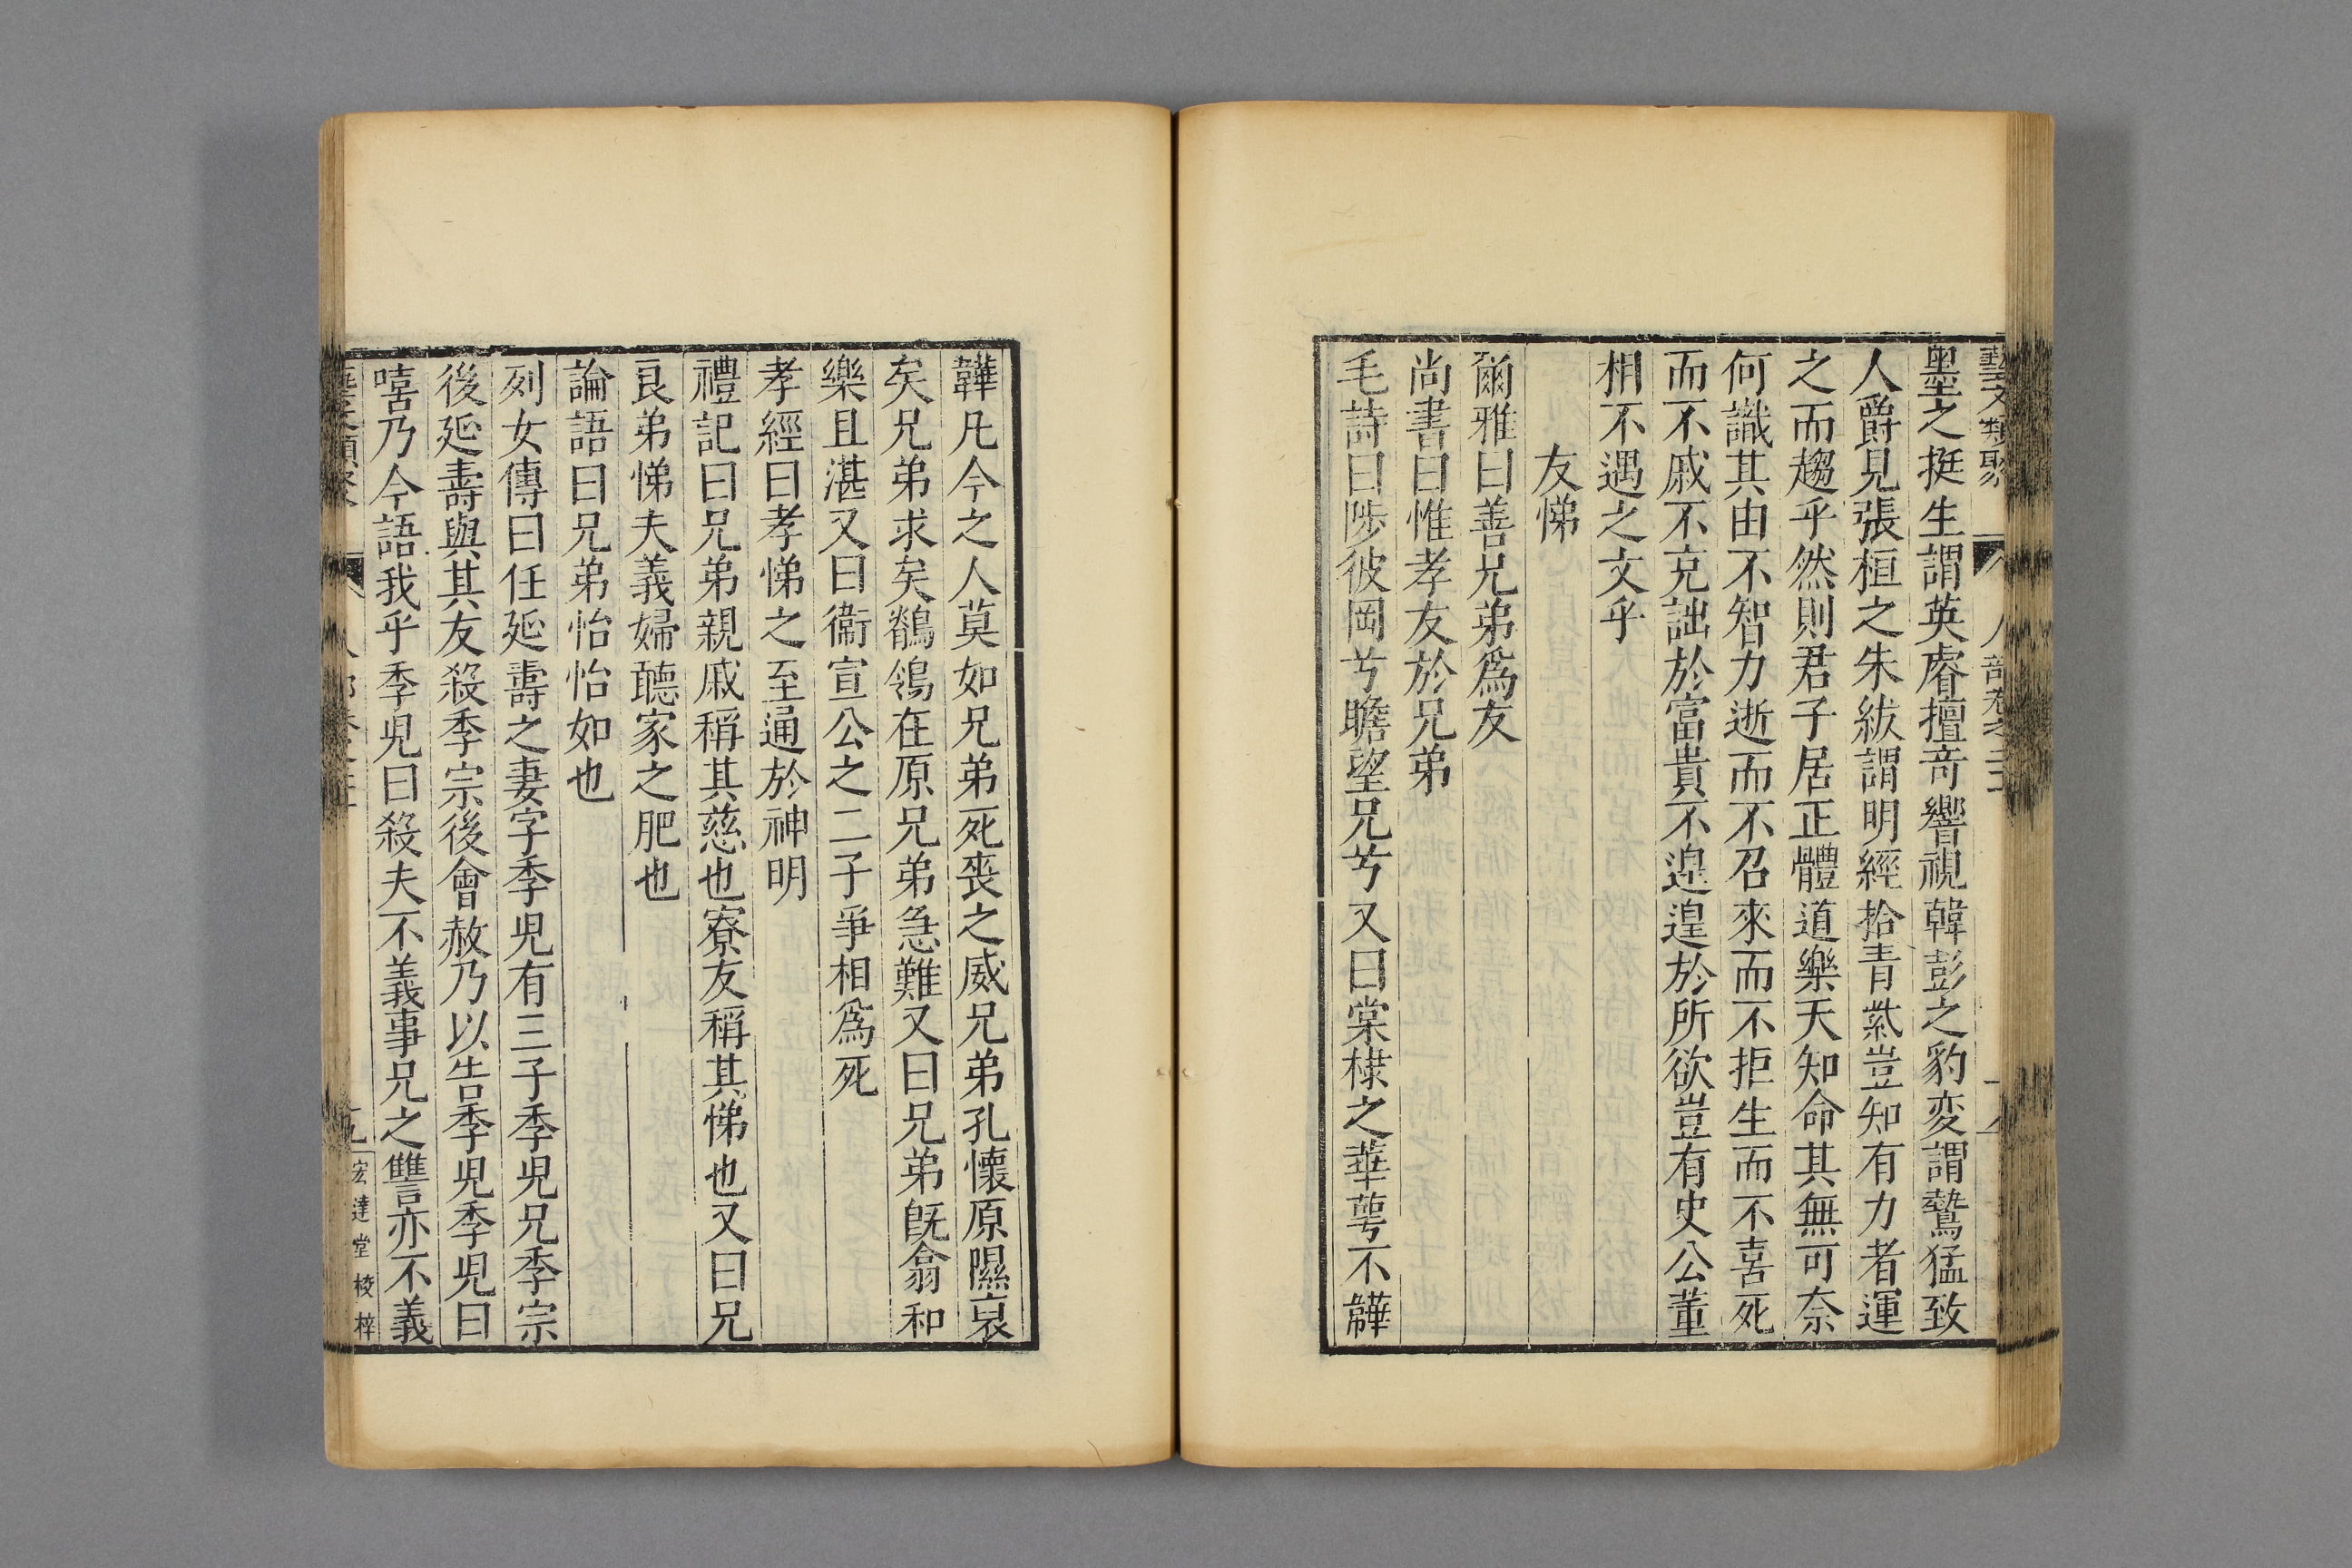 藝文類聚 人部卷之二十一 十八
墨之挺生謂英睿擅奇響視韓彭之豹変謂鷙猛致
人爵見張桓之朱紱謂明經拾青紫豈知有力者運
之而趨乎然則君子居正體道樂天知命其無可奈
何識其由不智力逝而不召來而不拒生而不喜死
而不戚不充詘於富貴不遑遑於所欲豈有史公董
相不遇之文乎
友悌
爾雅曰善兄弟爲友
尚書曰惟孝友於兄弟
毛詩曰陟彼岡兮瞻望兄兮又曰棠棣之華萼不韡
韡凡今之人莫如兄弟死喪之威兄弟孔懷原隰裒
矣兄弟求矣鶺鴒在原兄弟急難又曰兄弟旣翕和
樂且湛又曰衞宣公之二子爭相爲死
孝經曰孝悌之至通於神明
禮記曰兄弟親戚稱其慈也寮友稱其悌也又曰兄
良弟悌夫義婦聽家之肥也
論語曰兄弟怡怡如也
列女傳曰任延壽之妻字季兒有三子季兒兄季宗
後延壽與其友殺季宗後會赦乃以告季兒季兒曰
嘻乃今語我乎季兒曰殺夫不義事兄之讐亦不義
宏達堂校梓